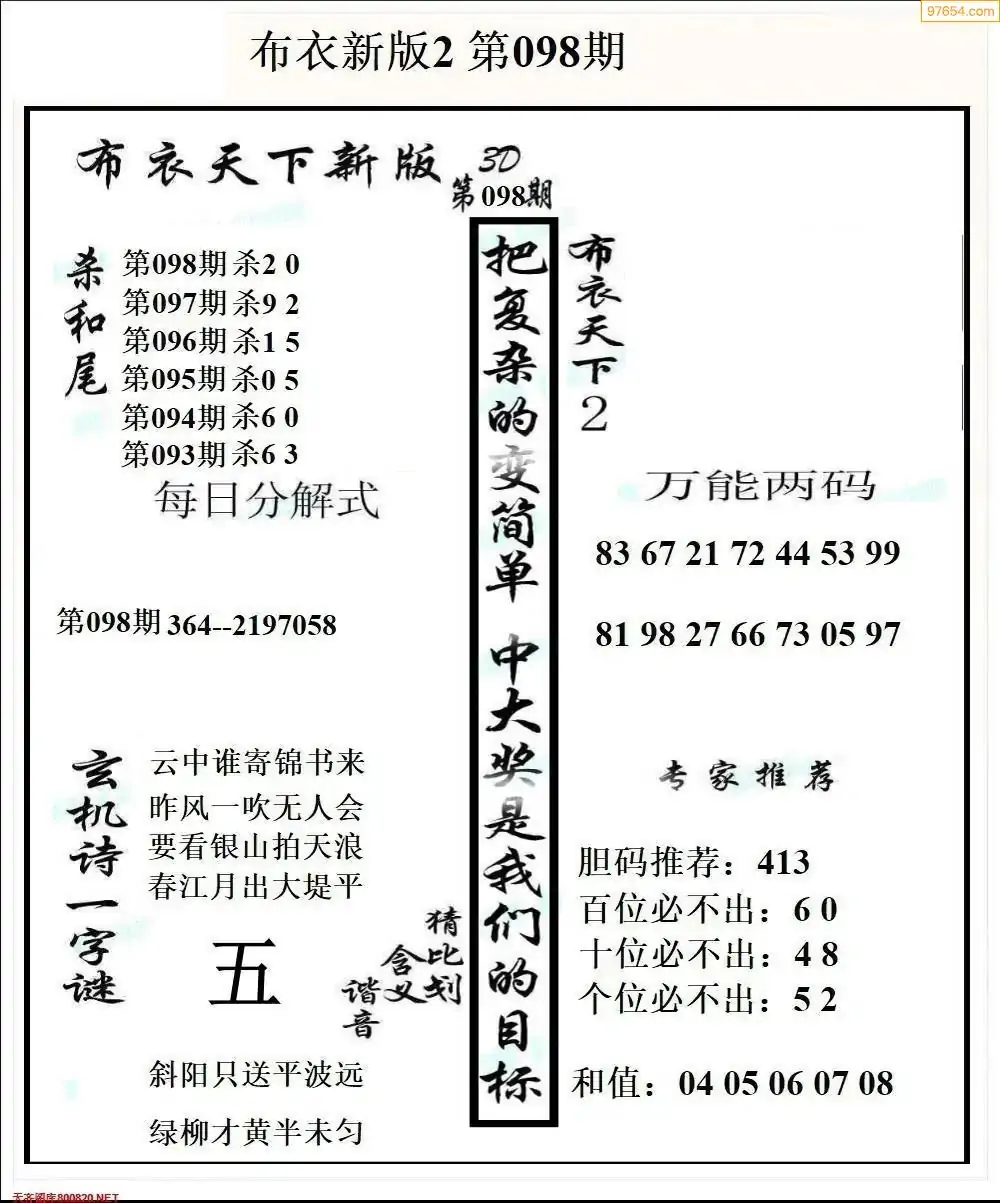 97654.com
布衣新版2 第098期
布衣天下新版
3D
第098期
杀和尾
第098期 杀2 0
第097期 杀9 2
第096期 杀1 5
第095期 杀0 5
第094期 杀6 0
第093期 杀6 3
每日分解式
第098期 364--2197058
玄机诗一字谜
云中谁寄锦书来
昨风一吹无人会
要看银山拍天浪
春江月出大堤平
五
猜比划
含义
谐音
斜阳只送平波远
绿柳才黄半未匀
把复杂的变简单 中大奖是我们的目标
布衣天下2
万能两码
83 67 21 72 44 53 99
81 98 27 66 73 05 97
专家推荐
胆码推荐：413
百位必不出：6 0
十位必不出：4 8
个位必不出：5 2
和值：04 05 06 07 08
天齐图库800820.NET